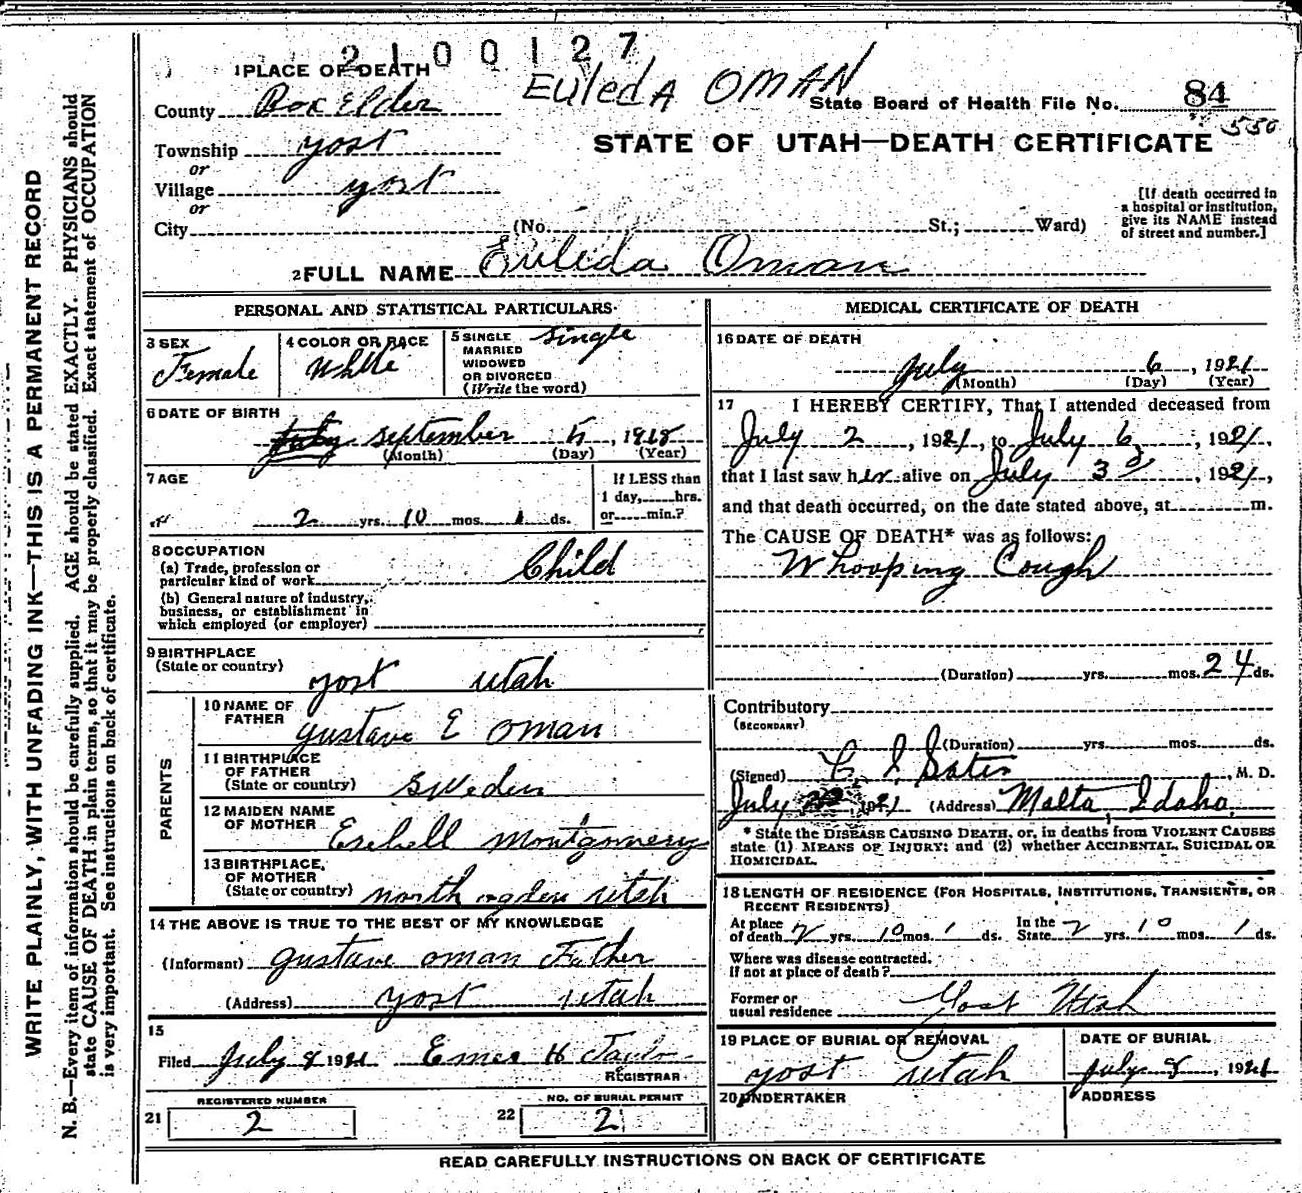 2100127
1 PLACE OF DEATH
Euleda Oman
County Box Elder
State Board of Health File No. 84
550
Township Yost
STATE OF UTAH—DEATH CERTIFICATE
or
Village Yost
or
City (No. St.; Ward)
[If death occurred in
a hospital or institution,
give its NAME instead
of street and number.]
2 FULL NAME Euleda Oman
PERSONAL AND STATISTICAL PARTICULARS
3 SEX
Female
4 COLOR OR RACE
White
5 SINGLE
MARRIED
WIDOWED
OR DIVORCED
(Write the word)
Single
6 DATE OF BIRTH
July September 5, 1918
(Month) (Day) (Year)
7 AGE
2 yrs. 10 mos. 1 ds.
If LESS than
1 day, hrs.
or min.?
8 OCCUPATION
(a) Trade, profession or
particular kind of work Child
(b) General nature of industry,
business, or establishment in
which employed (or employer)
9 BIRTHPLACE
(State or country)
Yost Utah
PARENTS
10 NAME OF
FATHER
Gustave E Oman
11 BIRTHPLACE
OF FATHER
(State or country)
Sweden
12 MAIDEN NAME
OF MOTHER
Montgomery
13 BIRTHPLACE
OF MOTHER
(State or country)
North Ogden Utah
14 THE ABOVE IS TRUE TO THE BEST OF MY KNOWLEDGE
(Informant) Gustave Oman Father
(Address) Yost Utah
15
Filed July 8 1921
REGISTRAR
REGISTERED NUMBER
21 2
NO. OF BURIAL PERMIT
22 2
MEDICAL CERTIFICATE OF DEATH
16 DATE OF DEATH
July 6, 1921
(Month) (Day) (Year)
17 I HEREBY CERTIFY, That I attended deceased from
July 2, 1921, to July 6, 1921,
that I last saw her alive on July 3d, 1921,
and that death occurred, on the date stated above, at m.
The CAUSE OF DEATH* was as follows:
Whooping Cough
(Duration) yrs. mos. 24 ds.
Contributory
(SECONDARY)
(Duration) yrs. mos. ds.
(Signed) , M. D.
July 1921 (Address) Malta, Idaho.
* State the DISEASE CAUSING DEATH, or, in deaths from VIOLENT CAUSES
state (1) MEANS OF INJURY; and (2) whether ACCIDENTAL, SUICIDAL OR
HOMICIDAL.
18 LENGTH OF RESIDENCE (FOR HOSPITALS, INSTITUTIONS, TRANSIENTS, OR
RECENT RESIDENTS)
At place
of death 2 yrs. 10 mos. 1 ds.
In the
State 2 yrs. 10 mos. 1 ds.
Where was disease contracted,
If not at place of death?
Former or
usual residence Yost Utah
19 PLACE OF BURIAL OR REMOVAL
Yost Utah
DATE OF BURIAL
July 8, 1921
20 UNDERTAKER
ADDRESS
READ CAREFULLY INSTRUCTIONS ON BACK OF CERTIFICATE
WRITE PLAINLY, WITH UNFADING INK—THIS IS A PERMANENT RECORD
N. B.—Every item of information should be carefully supplied. AGE should be stated EXACTLY. PHYSICIANS should
state CAUSE OF DEATH in plain terms, so that it may be properly classified. Exact statement of OCCUPATION
is very important. See instructions on back of certificate.